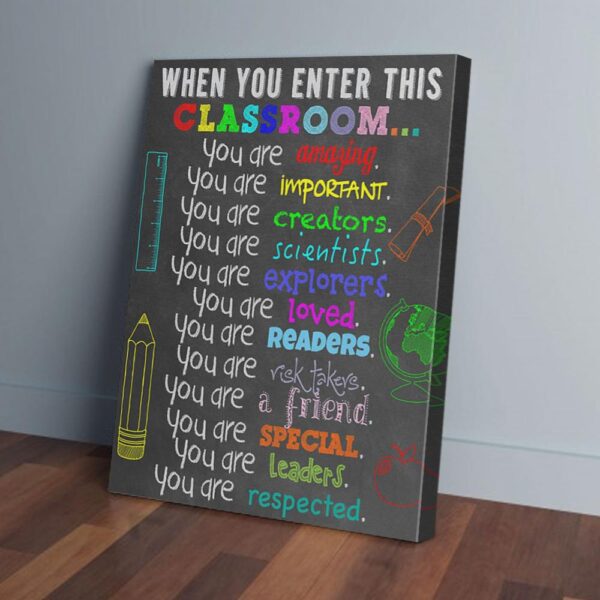 WHEN YOU ENTER THIS
CLASSROOM...
you are amazing.
you are IMPORTANT.
you are creators.
you are scientists.
you are explorers.
you are loved.
you are READERS.
you are risk takers.
you are a friend.
you are SPECIAL.
you are leaders.
you are respected.